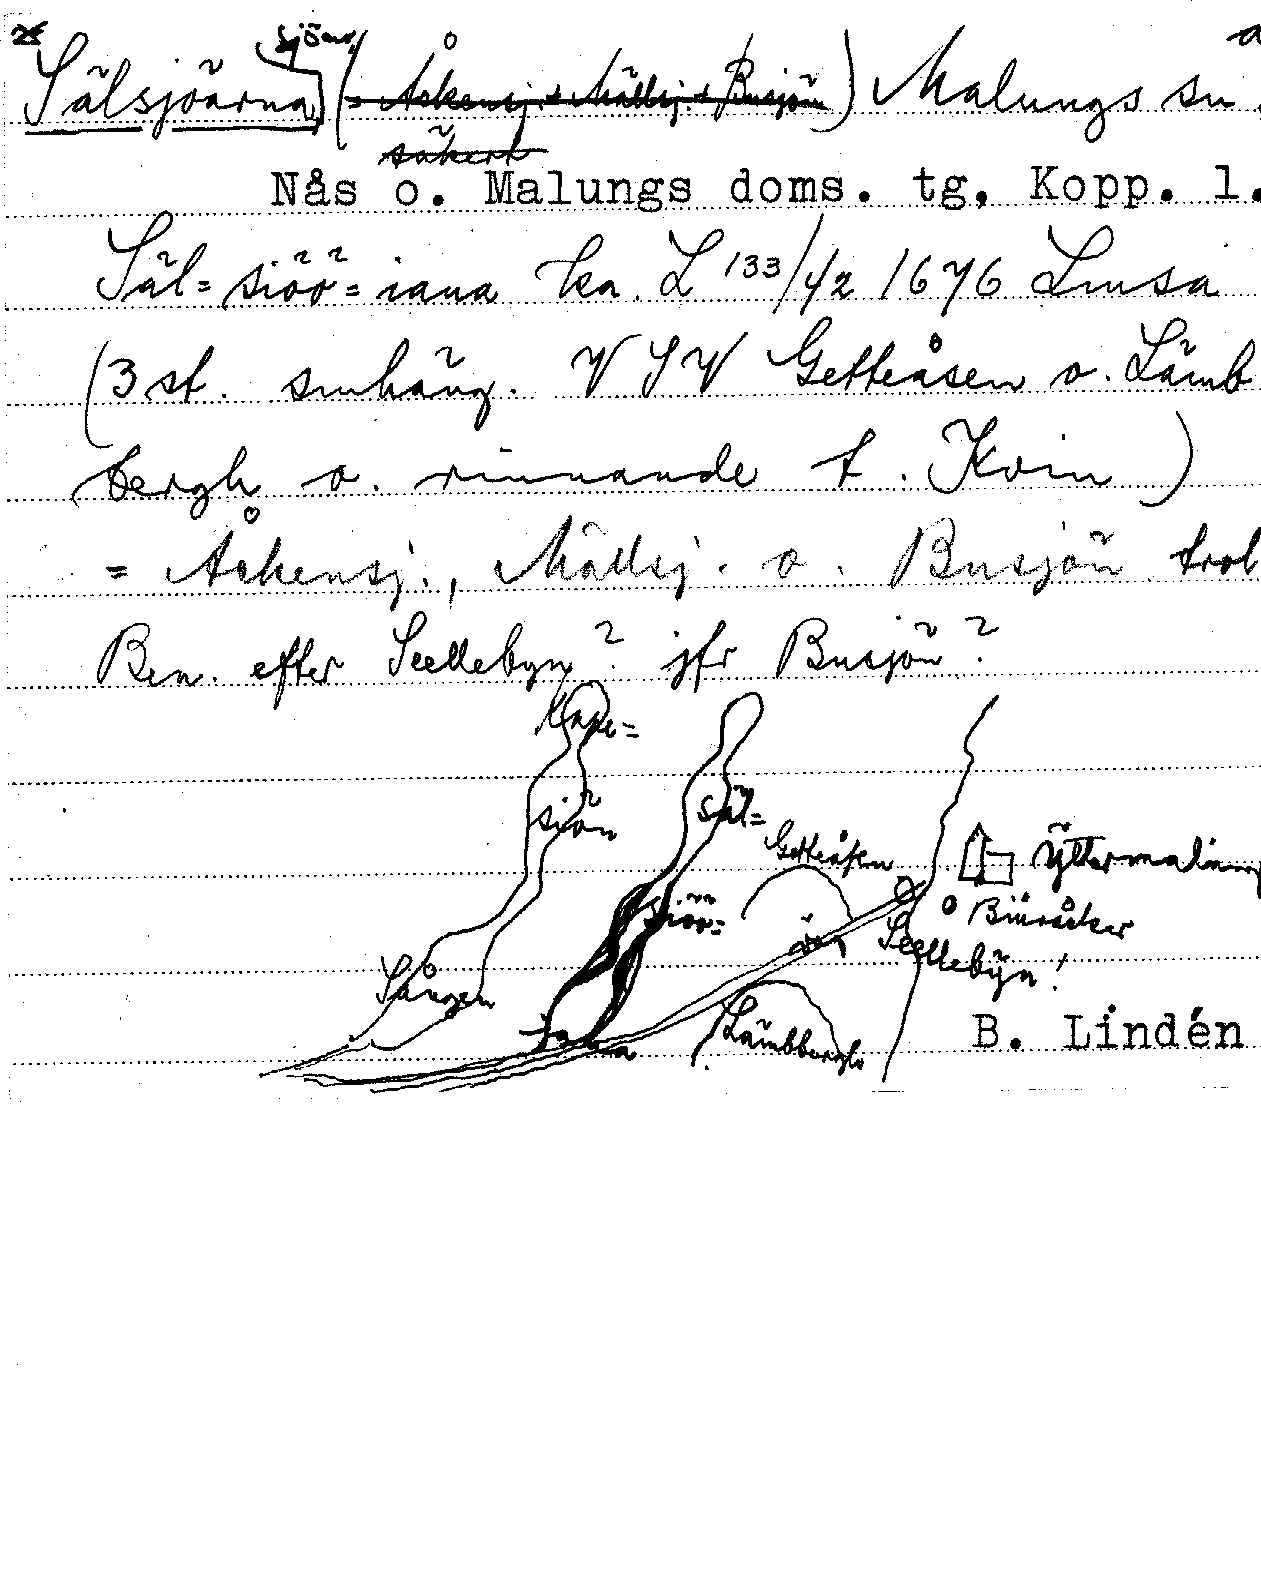 sjöar,
Sälsjöarna (= Åckensj. + Mällsj. + Busjön) Malungs sn
säkert
Nås o. Malungs doms. tg, Kopp. l.
Säl=siöö=iana ka. L 133/42 1676 Luusa
(3 st. smhäng. V SV Getteåsen o. Lämb
bergh o. rinnande t. Kvin)
= Åckensj., Mällsj. o. Busjön trol
Ben. efter Seellebyn? jfr Busjön?
sjön
Säl=
Getteåsen
Yttermalung
siöö=
Seellebyn!
Sången
Lämbbergh
B. Lindén